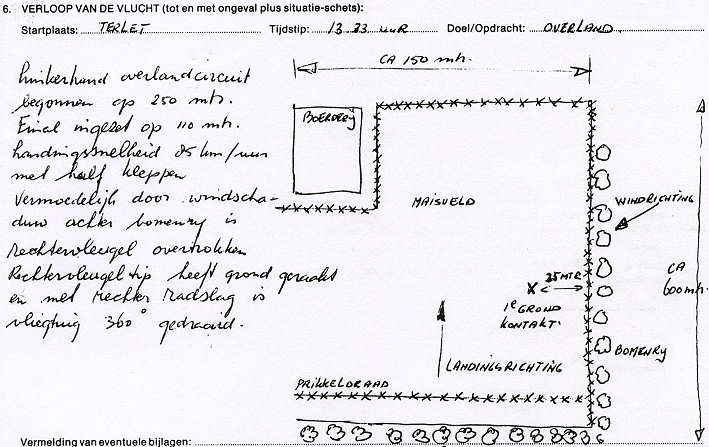 6. VERLOOP VAN DE VLUCHT (tot en met ongeval plus situatie-schets):
Startplaats: TERLET Tijdstip: 13.33 uur Doel/Opdracht: OVERLAND
Linkerhand overlandcircuit
begonnen op 250 mtr.
Final ingezet op 110 mtr.
Landingssnelheid 85 km/uur
met half kleppen
Vermoedelijk door windscha-
duw achter bomenrij is
rechtervleugel overtrokken
Rechtervleugel tip heeft grond geraakt
en met rechter radslag is
vliegtuig 360° gedraaid.
CA 150 mtr.
BOERDERIJ
MAISVELD
WINDRICHTING
25 MTR
CA
600 mtr.
1e GROND
KONTAKT.
BOMENRIJ
LANDINGSRICHTING
PRIKKELDRAAD
Vermelding van eventuele bijlagen: